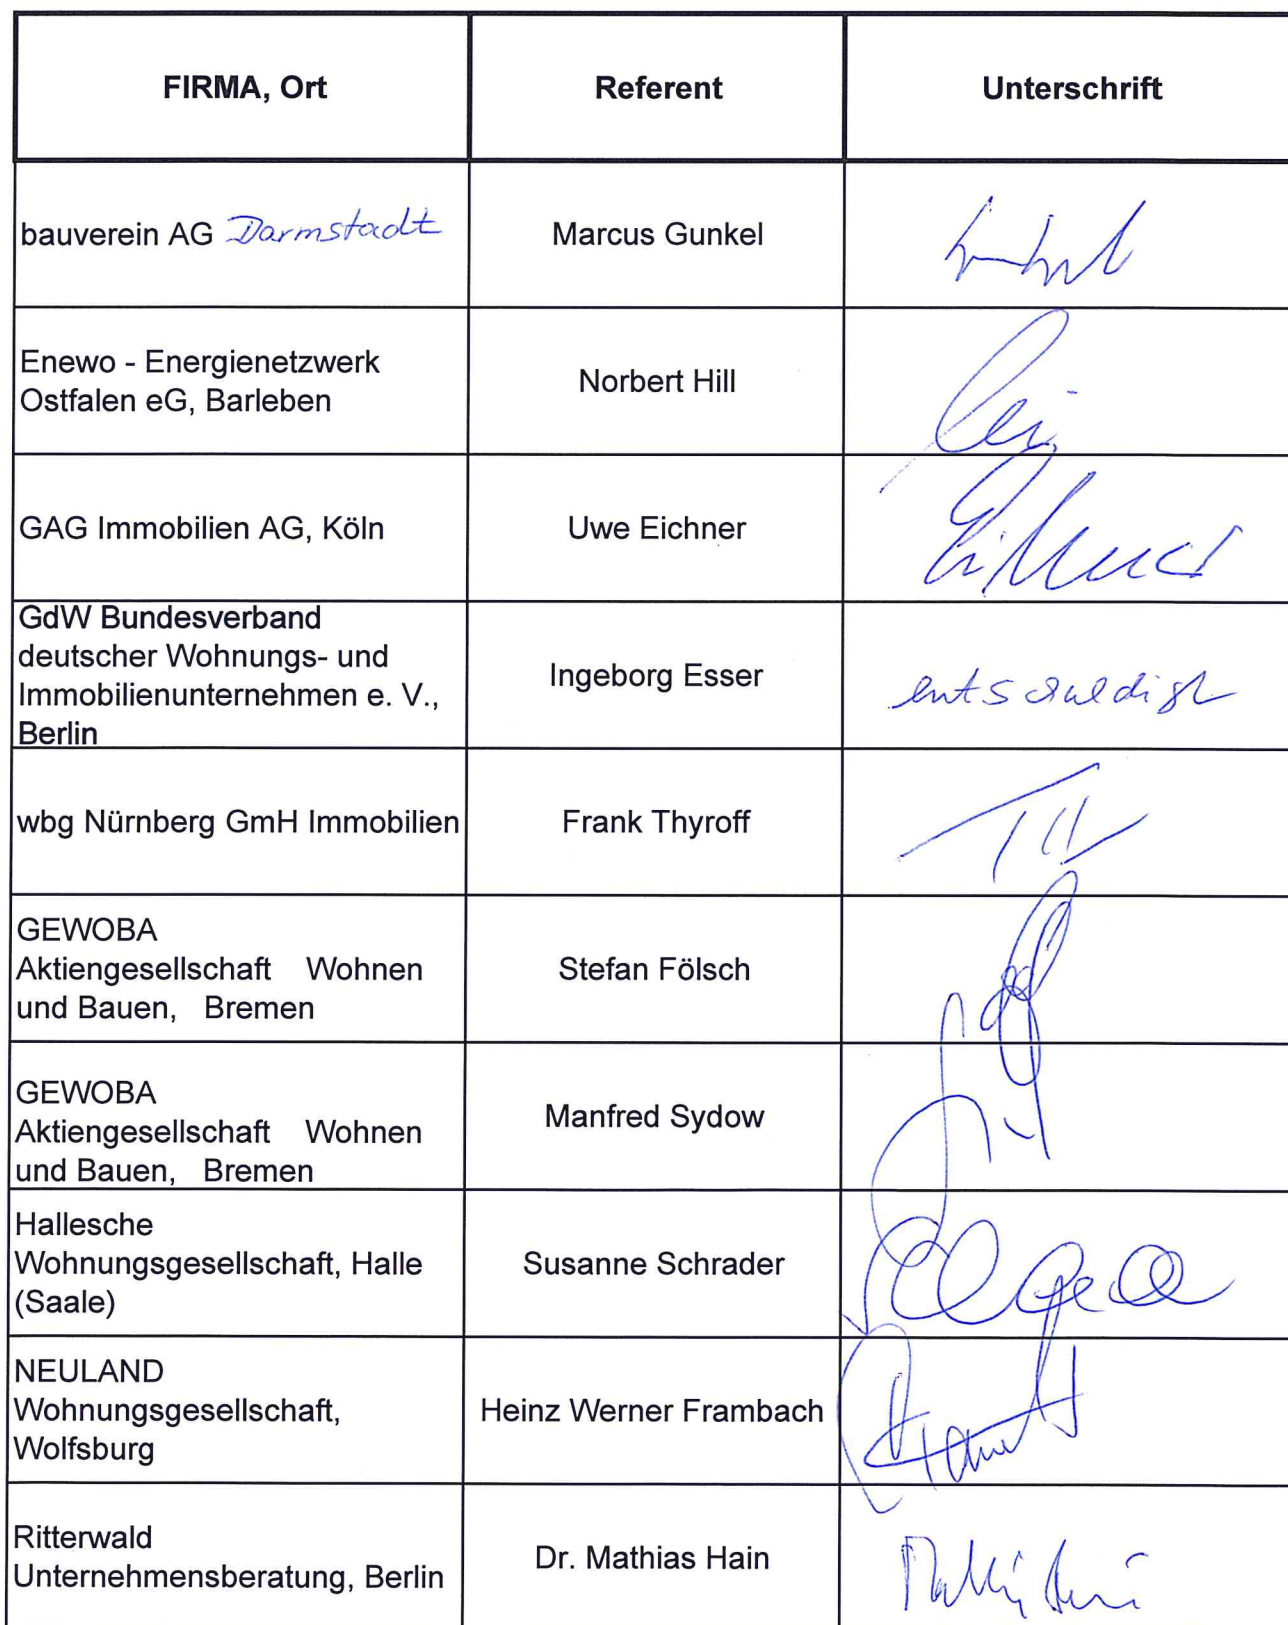 FIRMA, Ort Referent Unterschrift
bauverein AG Darmstadt Marcus Gunkel
Enewo - Energienetzwerk
Ostfalen eG, Barleben
Norbert Hill
GAG Immobilien AG, Köln Uwe Eichner
GdW Bundesverband
deutscher Wohnungs- und
Immobilienunternehmen e. V.,
Berlin
Ingeborg Esser
entschuldigt
wbg Nürnberg GmH Immobilien Frank Thyroff
GEWOBA
Aktiengesellschaft Wohnen
und Bauen, Bremen
Stefan Fölsch
GEWOBA
Aktiengesellschaft Wohnen
und Bauen, Bremen
Manfred Sydow
Hallesche
Wohnungsgesellschaft, Halle
(Saale)
Susanne Schrader
NEULAND
Wohnungsgesellschaft,
Wolfsburg
Heinz Werner Frambach
Ritterwald
Unternehmensberatung, Berlin
Dr. Mathias Hain